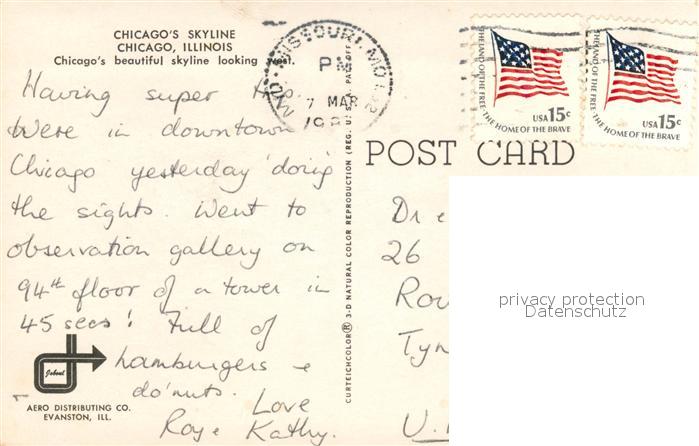 CHICAGO'S SKYLINE
CHICAGO, ILLINOIS
Chicago's beautiful skyline looking west.
Having super
Were in downtown
Chicago yesterday 'doing'
the sights. Went to
observation gallery on
94th floor of a tower in
45 secs! Full of
hamburgers &
do'nuts.
Love
Roy & Kathy.
Jaboul
AERO DISTRIBUTING CO.
EVANSTON, ILL.
CURTEICHCOLOR® 3-D NATURAL COLOR REPRODUCTION (REG. U.S.A. PAT. OFF.)
MISSOURI, MO
PM
7 MAR
THE LAND OF THE FREE · THE HOME OF THE BRAVE
USA 15c
THE LAND OF THE FREE · THE HOME OF THE BRAVE
USA 15c
POST CARD
Dr &
26
Tyn
U.
privacy protection
Datenschutz